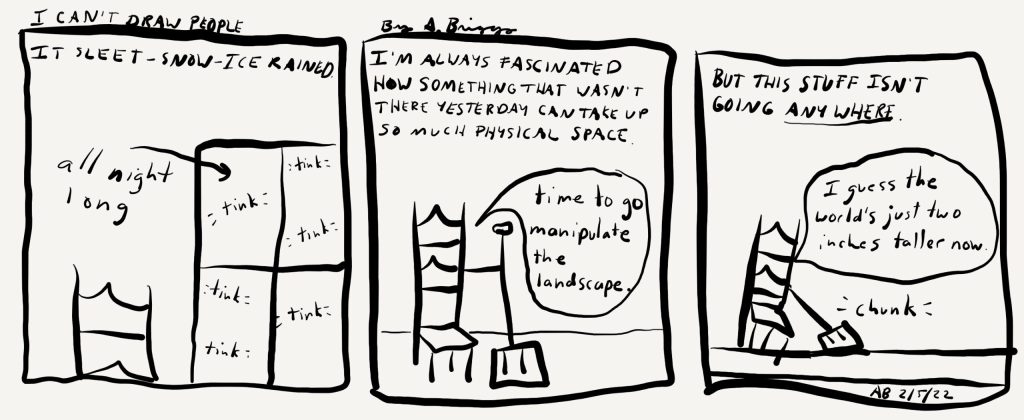 I CAN'T DRAW PEOPLE
By A. Briggs
IT SLEET-SNOW-ICE RAINED.
all night
long
:tink:
=tink=
=tink=
:tink:
=tink=
tink=
I'M ALWAYS FASCINATED
HOW SOMETHING THAT WASN'T
THERE YESTERDAY CAN TAKE UP
SO MUCH PHYSICAL SPACE.
time to go
manipulate
the
landscape.
BUT THIS STUFF ISN'T
GOING ANYWHERE.
I guess the
world's just two
inches taller now.
=chunk=
AB 2/5/22